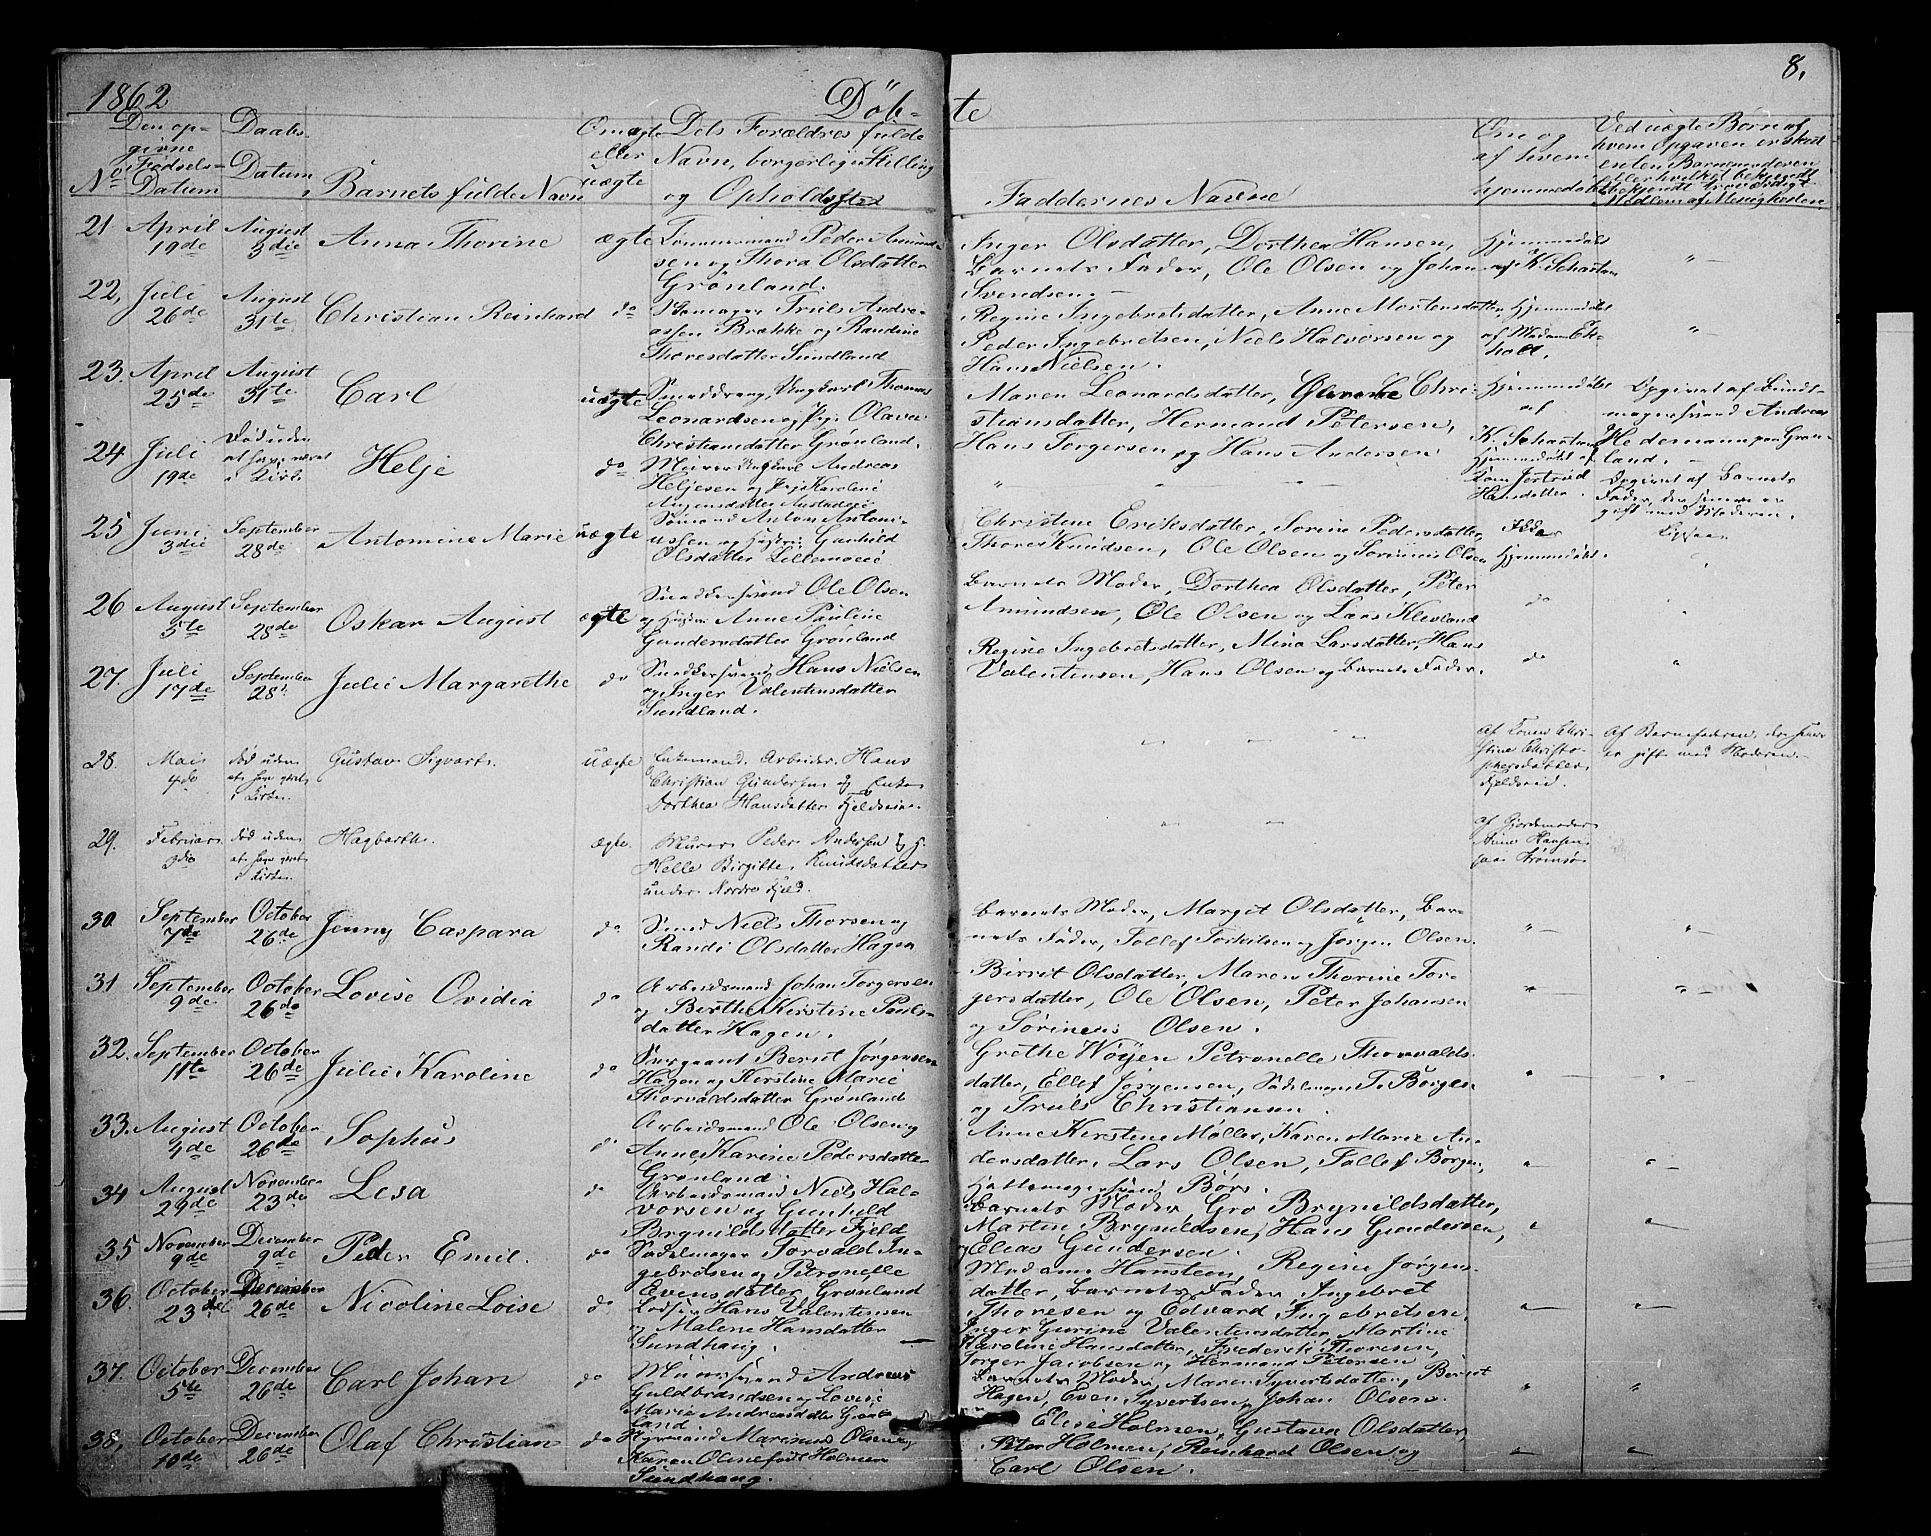 1862 Döb- te 8.
No. Den opgivne Fødsels-Datum Daabs-Datum Barnets fulde Navn Om ægte eller uægte Dets Forældres fulde Navn, borgerlige Stilling og Opholdssted Faddernes Navne Om og af hvem hjemmedøbt Ved uægte Børn af hvem Opgaven er skeet
21 April 19de August 3die Anna Thorine ægte Tømmermand Peder Amund-
sen og Thora Olsdatter
Grönland.
Inger Olsdatter, Dorthea Hansen,
Barnets Fader, Ole Olsen og Johan
Svendsen.
Hjemmedøbt
af K. Schartau "
22, Juli 26de August 31te Christian Reinhard do Truls Andre-
assen Brække og Randine
Thoresdatter Sundland
Regine Ingebretsdatter, Anne Mortensdatter,
Peder Ingebretsen, Niels Halvorsen og
Hans Nielsen.
Hjemmedøbt
af Madam Ek-
holt. "
23. April 25de August 31te Carl uægte Ungkarl Thomas
Leonardsen og Pige Olava
Christiansdatter Grönland.
Maren Leonardsdatter, Chri-
stiansdatter, Hermand Petersen,
Hans Torgersen og Hans Andersen
Hjemmedøbt
af
K. Schartau
Opgivet af Bundt-
magersvend Andreas
Hedemann paa Grön-
land.
24 Juli 19de Död uden
at have været
i Kirke
Helje do Murer Ungkarl Andreas
Heljesen og Pige Karoline
"
Hjemmedøbt af
Hansdatter.
Opgivet af Barnets
Fader, der senere er
gift med Moderen.
25 Juni 3die September 28de Antomine Marie uægte Sömand Anton Antoni-
ussen og Gunhild
Olsdatter
Christene Eriksdatter, Sorine Pedersdatter,
Thore Knudsen, Ole Olsen og Sorinius Olsen
Ikke
hjemmedøbt.
26 August 5te September 28de Oskar August ægte Snedkersvend Ole Olsen
og Hustru Anne Pauline
Gundersdatter Grönland
Barnets Moder, Dorthea Olsdatter, Peter
Amundsen, Ole Olsen og Lars Klevland
do "
27. Juli 17de September 28de Julie Margarethe do Snedkersvend Hans Nielsen
og Inger Valentinsdatter
Sundland.
Regine Ingebretsdatter, Mina Larsdatter, Hans
Valentinsen, Hans Olsen og Barnets Fader.
do "
28. Mai 4de död uden
at have været
i Kirke.
Gustav Sigvart. uægte Enkemand Arbeider Hans
Christian Gundersen og Enke
Dorthea Hansdatter
"
Af Konen Chri-
stine Christo-
phersdatter
Af Barnefaderen, der senere
er gift med Moderen.
29. Februar död uden
at have været
i Kirke.
Hagbarth. ægte. Murer Peder Andersen & H.
Helle Birgitte Knudsdatter
under Nordre Fjeld.
"
af Gjordemoder
Anne Hansen
paa Strømsø
30. September 7de October 26de Jenny Caspara do Smed Niels Thorsen og
Randi Olsdatter Hagen
Barnets Moder, Margit Olsdatter, Bar-
nets Fader, Tollef Torkilsen og Jörgen Olsen.
" "
31 September 9de October 26de Lovise Ovidia do Arbeidsmand Johan Torgersen
og Birthe Kirstine Pauls-
datter Hagen.
Birret Olsdatter, Maren Thorine Tor-
gersdatter, Ole Olsen, Peter Johansen
og Sörinius Olsen.
" "
32. September 11te October 26de Julie Karoline do Sergeant Bernt Jörgensen
Hagen og Kirstine Marie
Thorvaldsdatter Grönland
Grethe Wöyen Petronelle Thorvalds-
datter, Ellef Jörgensen, Sadelmager T. Borgen
og Truls Christiansen.
" "
33. August 4de October 26de Sophus do Arbeidsmand Ole Olsen og
Anne Karine Pedersdatter
Grönland.
Anne Kirstine Möller, Karen Marie An-
dersdatter, Lars Olsen, Tollef Borgen,
Hattemagersvend Börs.
" "
34 August 29de November 23de Lesa do Arbeidsmand Niels Hal-
vorsen og Gunhild
Brynildsdatter Fjeld
Barnets Moder Gro Brynildsdatter,
Martin Brynildsen, Hans Gundersen,
og Elias Gundersen.
" "
35 November 9de December 9de Peder Emil. do Sadelmager Torvald In-
gebretsen og Petronelle
Evensdatter, Grönland
Madame Hansteen, Regine Jörgens-
datter, Barnets Fader, Ingebret
Thoresen og Edvard Ingebretsen.
36. October 23de December 26de Nicoline Loise do Lods Hans Valentinsen
og Malene Hansdatter
Sundhaug.
Inger Gurine Valentinsdatter, Martine
Karoline Hansdatter, Frederik Thoresen,
Torger Jacobsen og Hermand Petersen
" "
37. October 5te December 26de Carl Johan do Muursvend Andreas
Guldbrandsen og Lovise
Marie Andreasdatter Grön-
land
Barnets Moder, Maren Syvertsdatter, Bernt
Hagen, Even Syvertsen, Johan Olsen.
" "
38. October 10de December 26de Olaf Christian do Styrmand Marinius Olsen og
Karen Oline født Holmen
Sundhaug.
Elise Holmen, Gustava Olsdatter,
Peter Holmen, Reinhard Olsen og
Carl Olsen.
" "